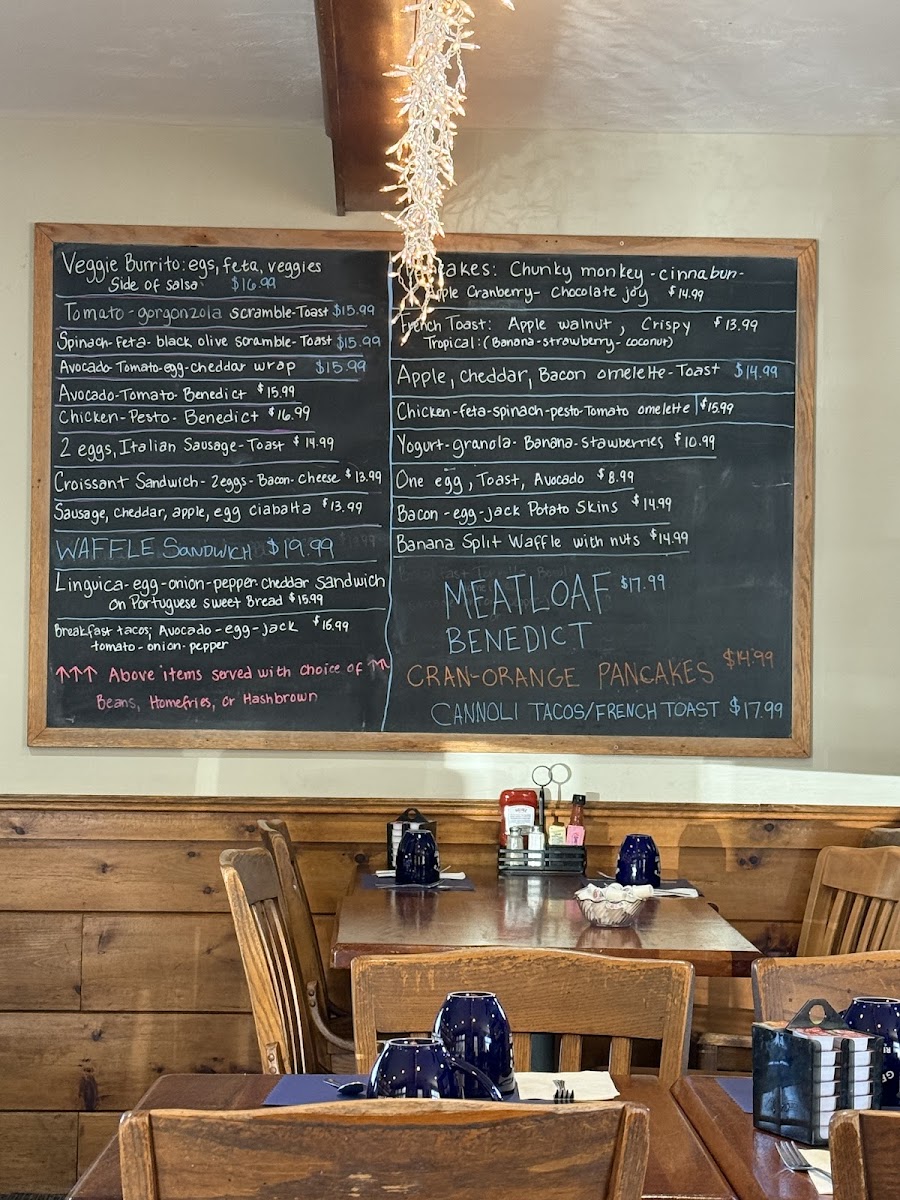 Veggie Burrito: egs, feta, veggies
Side of salsa $16.99
Tomato-gorgonzola scramble-Toast $15.99
Spinach-Feta-black olive scramble-Toast $15.99
Avocado-Tomato-egg-cheddar wrap $15.99
Avocado-Tomato-Benedict $15.99
Chicken-Pesto-Benedict $16.99
2 eggs, Italian Sausage-Toast $14.99
Croissant Sandwich-2eggs-Bacon-cheese $13.99
Sausage, cheddar, apple, egg ciabatta $13.99
WAFFLE SANDWICH $19.99
Linguica-egg-onion-pepper-cheddar Sandwich
on Portuguese sweet Bread $15.99
Breakfast tacos; Avocado-egg-jack $16.99
tomato-onion-pepper
↑↑↑ Above items served with choice of ↑↑
Beans, Homefries, or Hashbrown
cakes: Chunky monkey-cinnabun-
Apple Cranberry-Chocolate joy $14.99
French Toast: Apple walnut, Crispy $13.99
Tropical: (Banana-strawberry-coconut)
Apple, cheddar, Bacon omelette-Toast $14.99
Chicken-feta-spinach-pesto-Tomato omelette $15.99
Yogurt-granola-Banana-stawberries $10.99
One egg, Toast, Avocado $8.99
Bacon-egg-jack Potato Skins $14.99
Banana Split Waffle with nuts $14.99
MEATLOAF $17.99
BENEDICT
CRAN-ORANGE PANCAKES $14.99
CANNOLI TACOS/FRENCH TOAST $17.99